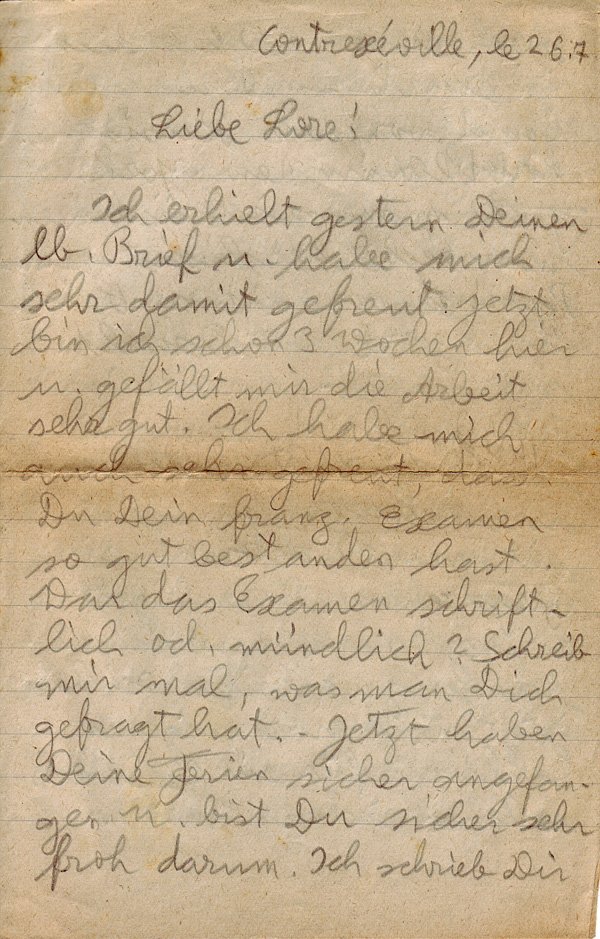 Contrexéville, le 26.7
Liebe Lore!
Ich erhielt gestern Deinen
lb. Brief u. habe mich
sehr damit gefreut. Jetzt
bin ich schon 3 Wochen hier
u. gefällt mir die Arbeit
sehr gut. Ich habe mich
auch sehr gefreut, dass
Du Dein franz. Examen
so gut bestanden hast.
War das Examen schrift-
lich od. mündlich? Schreib
mir mal, was man Dich
gefragt hat. - Jetzt haben
Deine Ferien sicher angefan-
gen u. bist Du sicher sehr
froh darum. Ich schrieb Dir